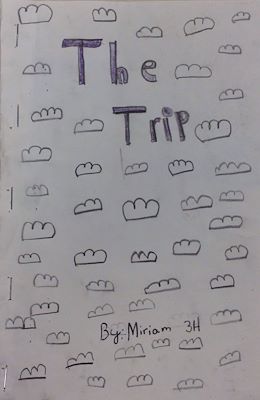 The
Trip
By: Miriam 3H